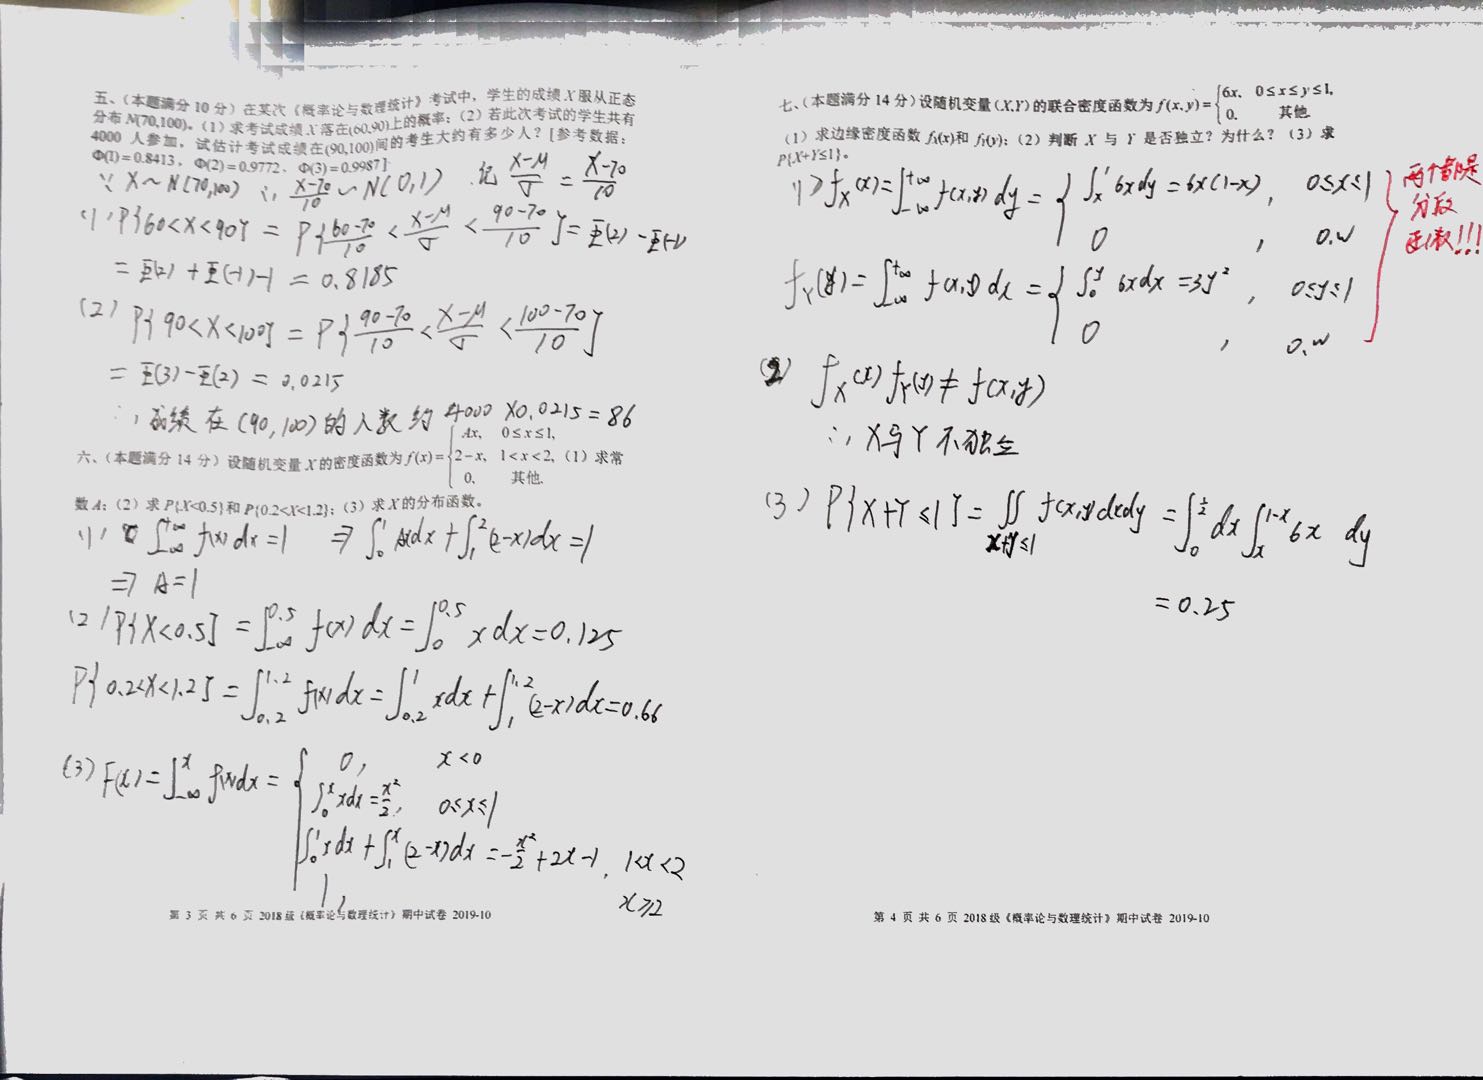 五、（本题满分 10 分）在某次《概率论与数理统计》考试中，学生的成绩 X 服从正态
分布 N(70,100)。（1）求考试成绩 X 落在(60,90)上的概率；（2）若此次考试的学生共有
4000 人参加，试估计考试成绩在(90,100)间的考生大约有多少人？[参考数据：
Φ(1)=0.8413，Φ(2)=0.9772，Φ(3)=0.9987]
∵ X~N(70,100) ∴ (X-70)/10 ~ N(0,1) 记 (X-μ)/σ = (X-70)/10
(1) P{60<X<90} = P{(60-70)/10 < (X-μ)/σ < (90-70)/10} = Φ(2)-Φ(-1)
= Φ(2)+Φ(-1)-1 = 0.8185
(2) P{90<X<100} = P{(90-70)/10 < (X-μ)/σ < (100-70)/10}
= Φ(3)-Φ(2) = 0.0215
∴ 成绩在(90,100)的人数约 4000×0.0215=86
六、（本题满分 14 分）设随机变量 X 的密度函数为 f(x)={Ax, 0≤x≤1, 2-x, 1<x<2, 0, 其他.（1）求常
数 A；（2）求 P{X<0.5}和 P{0.2<X<1.2}；（3）求 X 的分布函数。
(1) ∫_{-∞}^{+∞} f(x)dx=1 ⇒ ∫_0^1 Axdx+∫_1^2 (2-x)dx=1
⇒ A=1
(2) P{X<0.5} = ∫_{-∞}^{0.5} f(x)dx = ∫_0^{0.5} xdx=0.125
P{0.2<X<1.2} = ∫_{0.2}^{1.2} f(x)dx = ∫_{0.2}^1 xdx+∫_1^{1.2} (2-x)dx=0.66
(3) F(x)=∫_{-∞}^x f(x)dx = { 0, x<0
∫_0^x xdx=x²/2, 0≤x≤1
∫_0^1 xdx+∫_1^x (2-x)dx=-x²/2+2x-1, 1<x<2
1, x≥2
第 3 页 共 6 页 2018 级《概率论与数理统计》期中试卷 2019-10
七、（本题满分 14 分）设随机变量 (X,Y) 的联合密度函数为 f(x,y)={6x, 0≤x≤y≤1, 0, 其他.
（1）求边缘密度函数 f_X(x)和 f_Y(y)；（2）判断 X 与 Y 是否独立？为什么？（3）求
P{X+Y≤1}。
(1) f_X(x)=∫_{-∞}^{+∞} f(x,y)dy = { ∫_x^1 6xdy=6x(1-x), 0≤x≤1
0, o.w
f_Y(y)=∫_{-∞}^{+∞} f(x,y)dx = { ∫_0^y 6xdx=3y², 0≤y≤1
0, o.w
两个都是
分段
函数!!!
(2) f_X(x)f_Y(y)≠f(x,y)
∴ X与Y不独立
(3) P{X+Y≤1}=∬_{x+y≤1} f(x,y)dxdy=∫_0^{1/2}dx∫_x^{1-x}6x dy
=0.25
第 4 页 共 6 页 2018 级《概率论与数理统计》期中试卷 2019-10